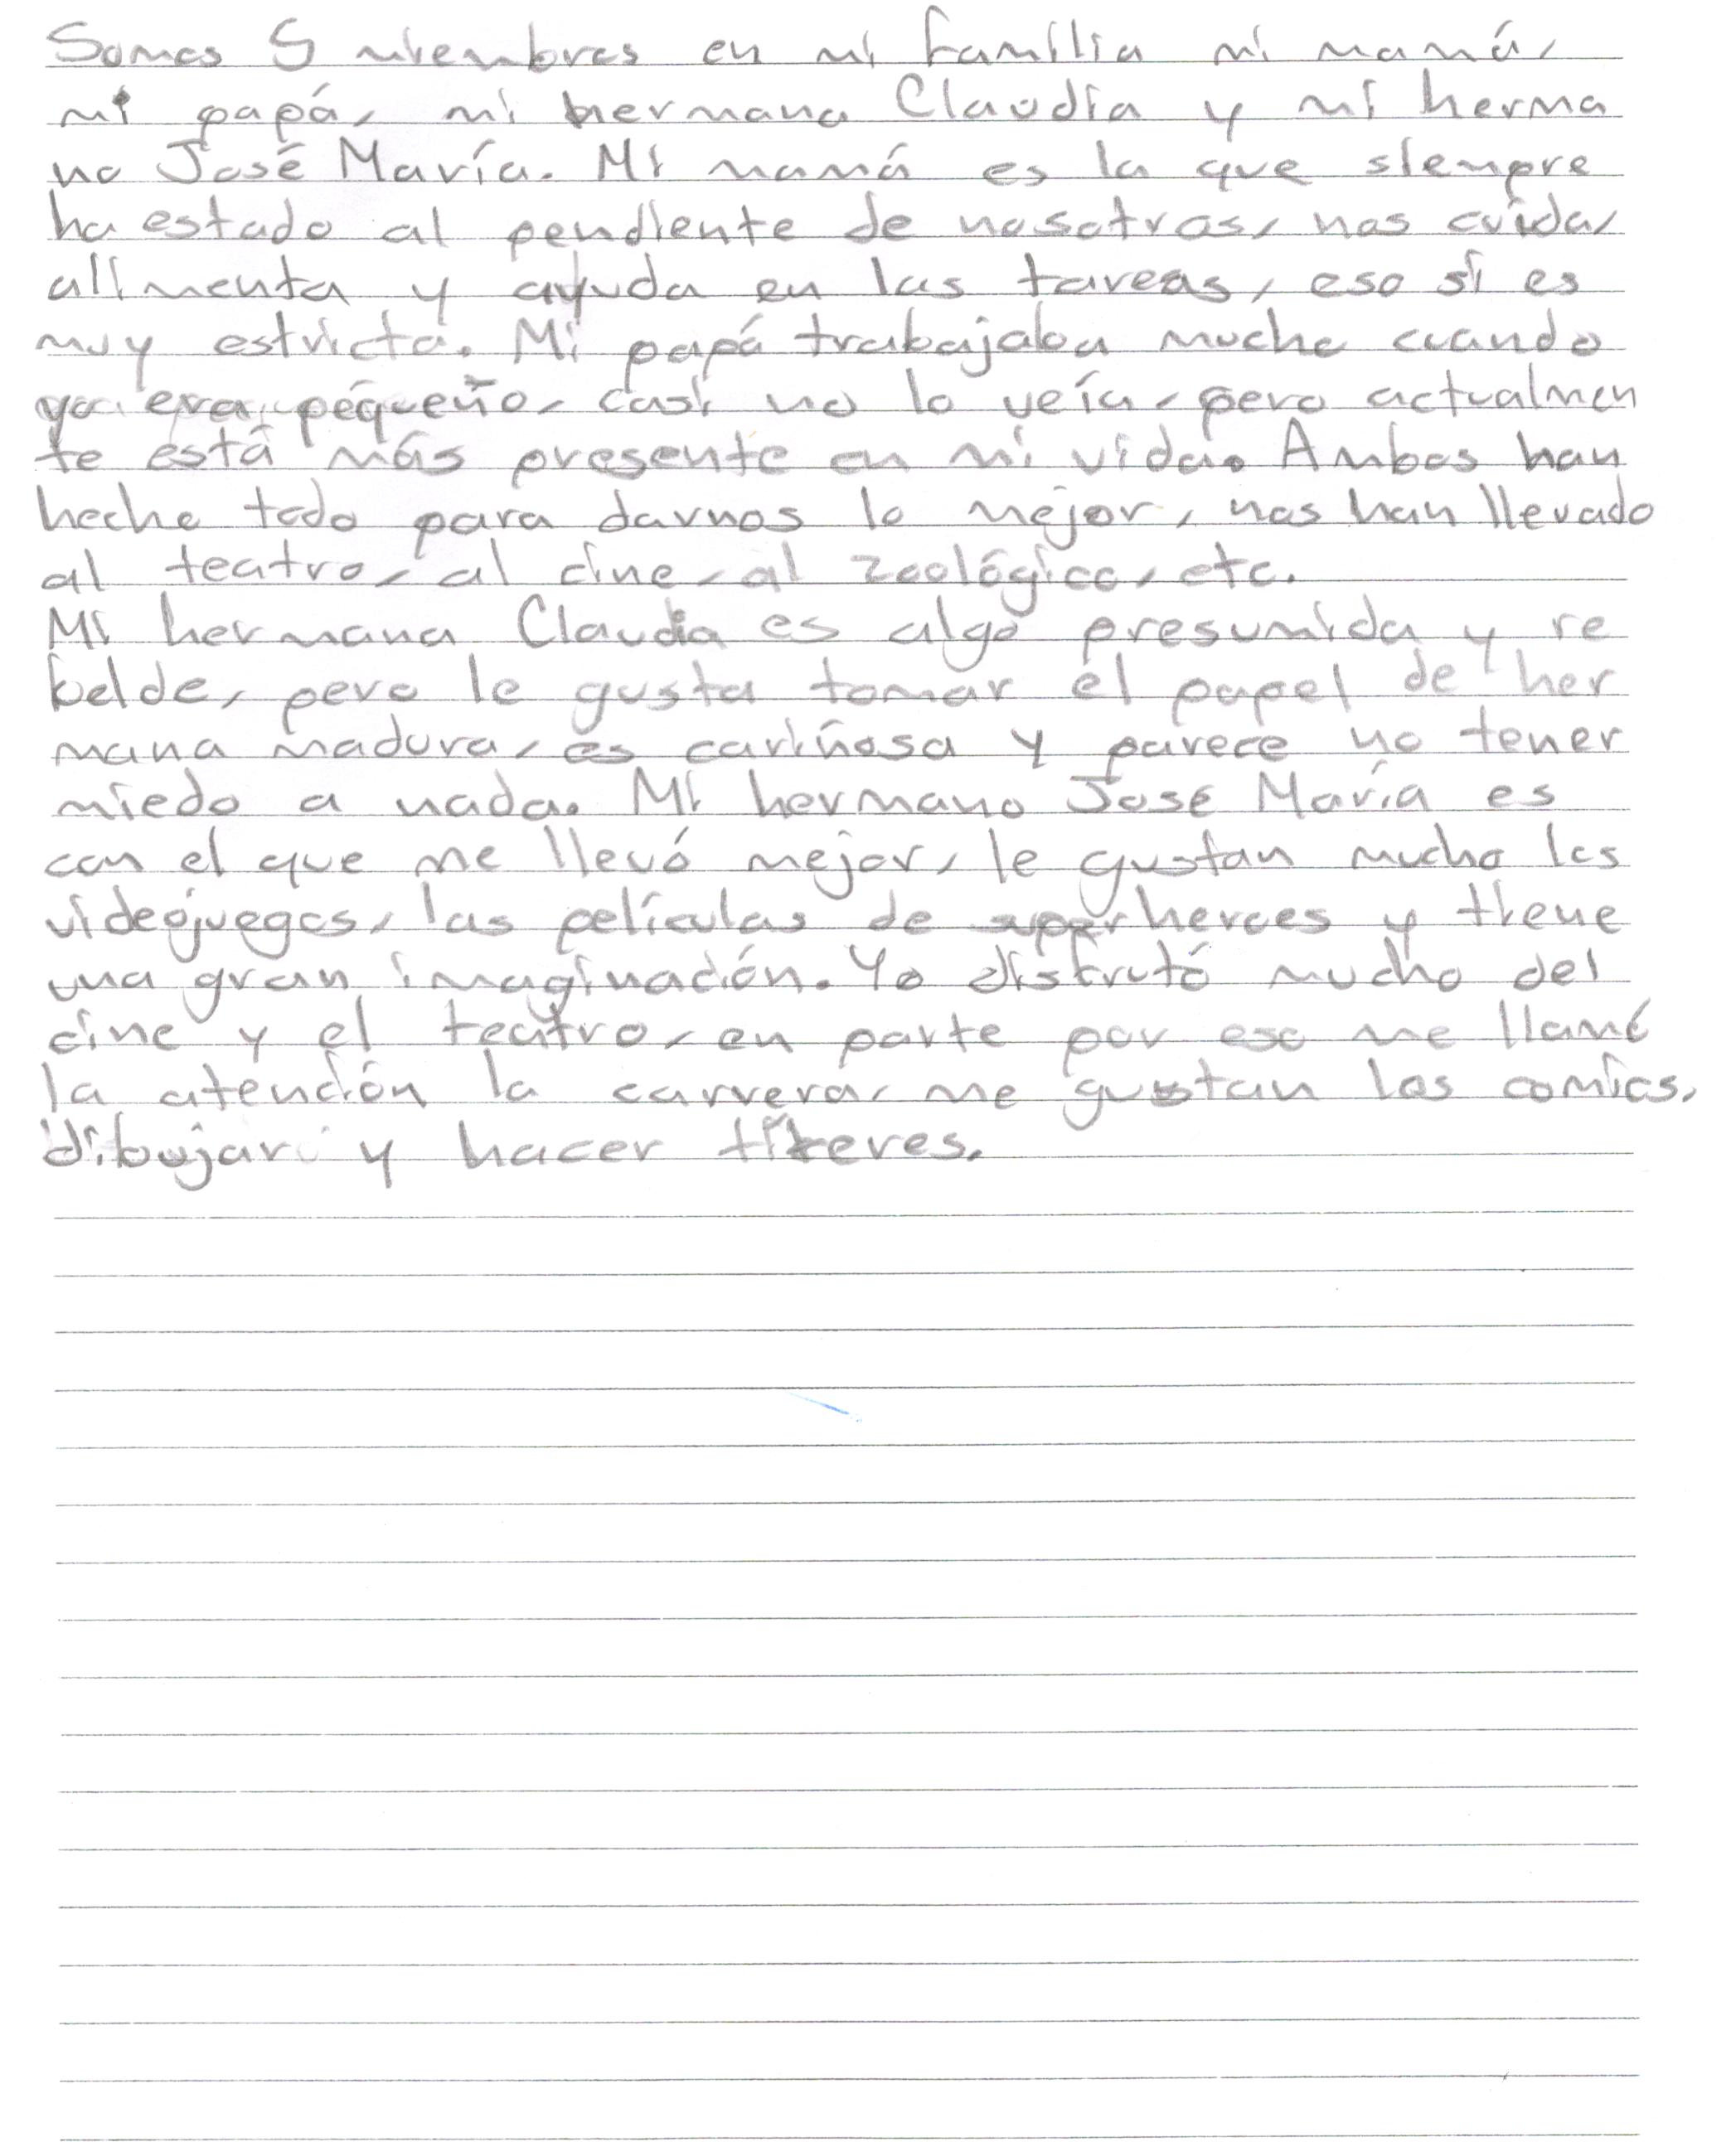 Somos 5 miembros en mi familia mi mamá,
mi papá, mi hermana Claudia y mi herma
no José María. Mi mamá es la que siempre
ha estado al pendiente de nosotros, nos cuida,
alimenta y ayuda en las tareas, eso si es
muy estricta. Mi papá trabajaba mucho cuando
yo era pequeño, casi no lo veía, pero actualmen
te está más presente en mi vida. Ambos han
hecho todo para darnos lo mejor, nos han llevado
al teatro, al cine, al zoológico, etc.
Mi hermana Claudia es algo presumida y re
belde, pero le gusta tomar el papel de her
mana madura, es cariñosa y parece no tener
miedo a nada. Mi hermano José María es
con el que me llevó mejor, le gustan mucho los
videojuegos, las películas de superheroes y tiene
una gran imaginación. Yo disfrutó mucho del
cine y el teatro, en parte por eso me llamó
la atención la carrera, me gustan los comics,
dibujar y hacer títeres.